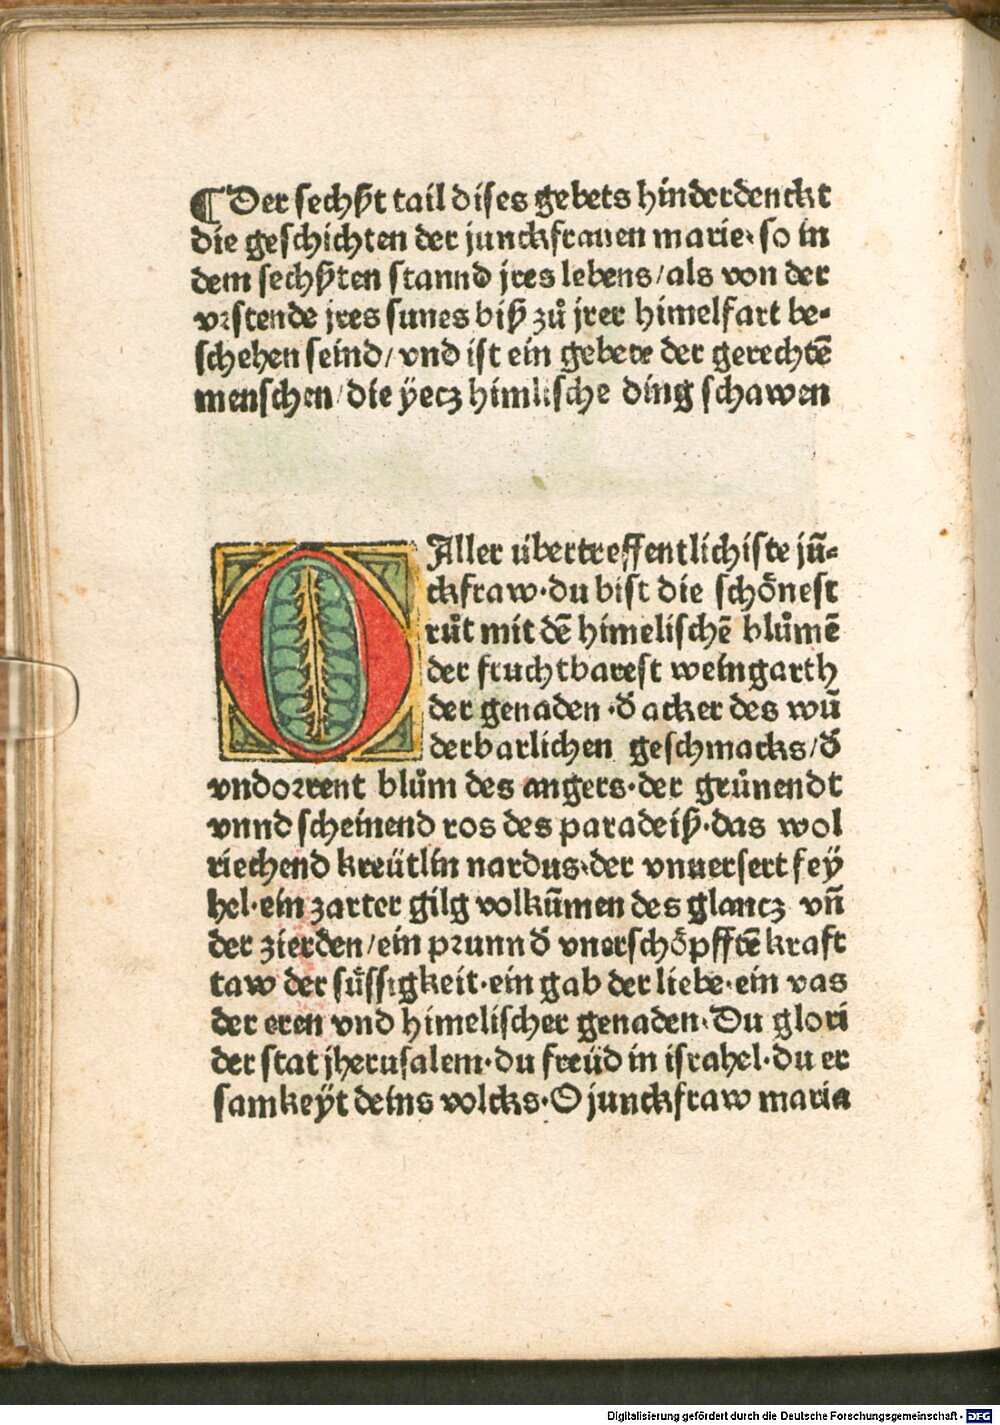 ¶ Der sechßt tail dises gebets hinderdenckt
die geschichten der junckfrauen marie· so in
dem sechßten stannd jres lebens/als von der
vꝛstende jres sunes biß zů jrer himelfart be-
schehen seind/ vnd ist ein gebete der gerechtē
menschen/die ÿecz himlische ding schawen
O Aller übertreffentlichiste jū-
ckfraw·du bist die schönest
růt mit dē himelischē blůmē
der fruchtbarest weingarth
der genaden ·đ acker des wū
derbarlichen geschmacks/đ
vndoꝛrent blům des angers·der grůnendt
vnnd scheinend ros des paradeiß·das wol
riechend kreütlin nardus·der vnuersert feÿ
hel·ein zarter gilg volkūmen des glancz vn̄
der zierden/ein pꝛunn đ vnerschöpfftē kraft
taw der süssigkeit·ein gab der liebe·ein vas
der eren vnd himelischer genaden·Du glori
der stat jherusalem·du freüd in israhel·du er
samkeÿt deins volcks·O junckfraw maria
Digitalisierung gefördert durch die Deutsche Forschungsgemeinschaft - DFG